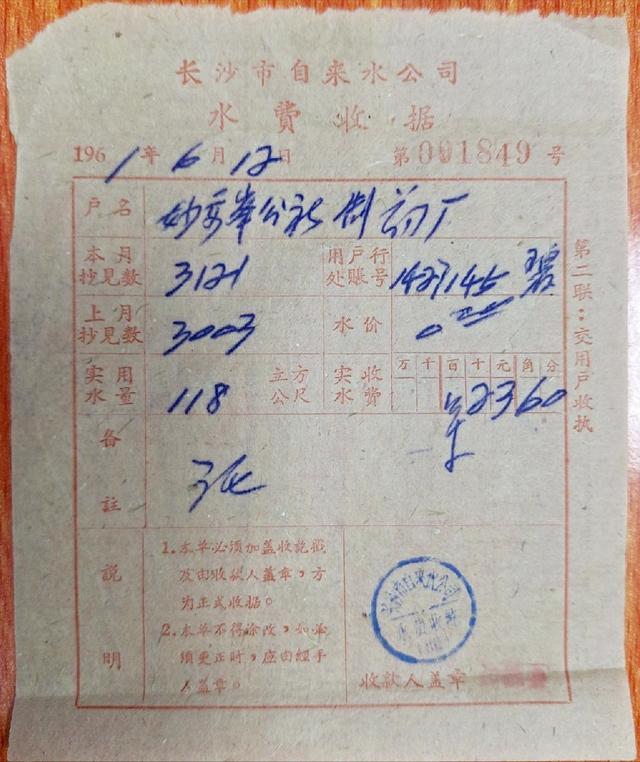 长沙市自来水公司
水費收据
1961年6月12日 第001849号
户名 妙高峯公社制药厂
本月抄見数 3121 用户行处賬号 1427145 碧
上月抄見数 3003 水价 0.20
实用水量 118 立方公尺 实收水費 万千百十元角分 ¥2360
备註
説明
1.本单必須加盖收訖戳
及由收款人盖章，方
为正式收据。
2.本单不得涂改，如必
須更正时，应由經手
人盖章。
收款人盖章
第二联：交用户收执